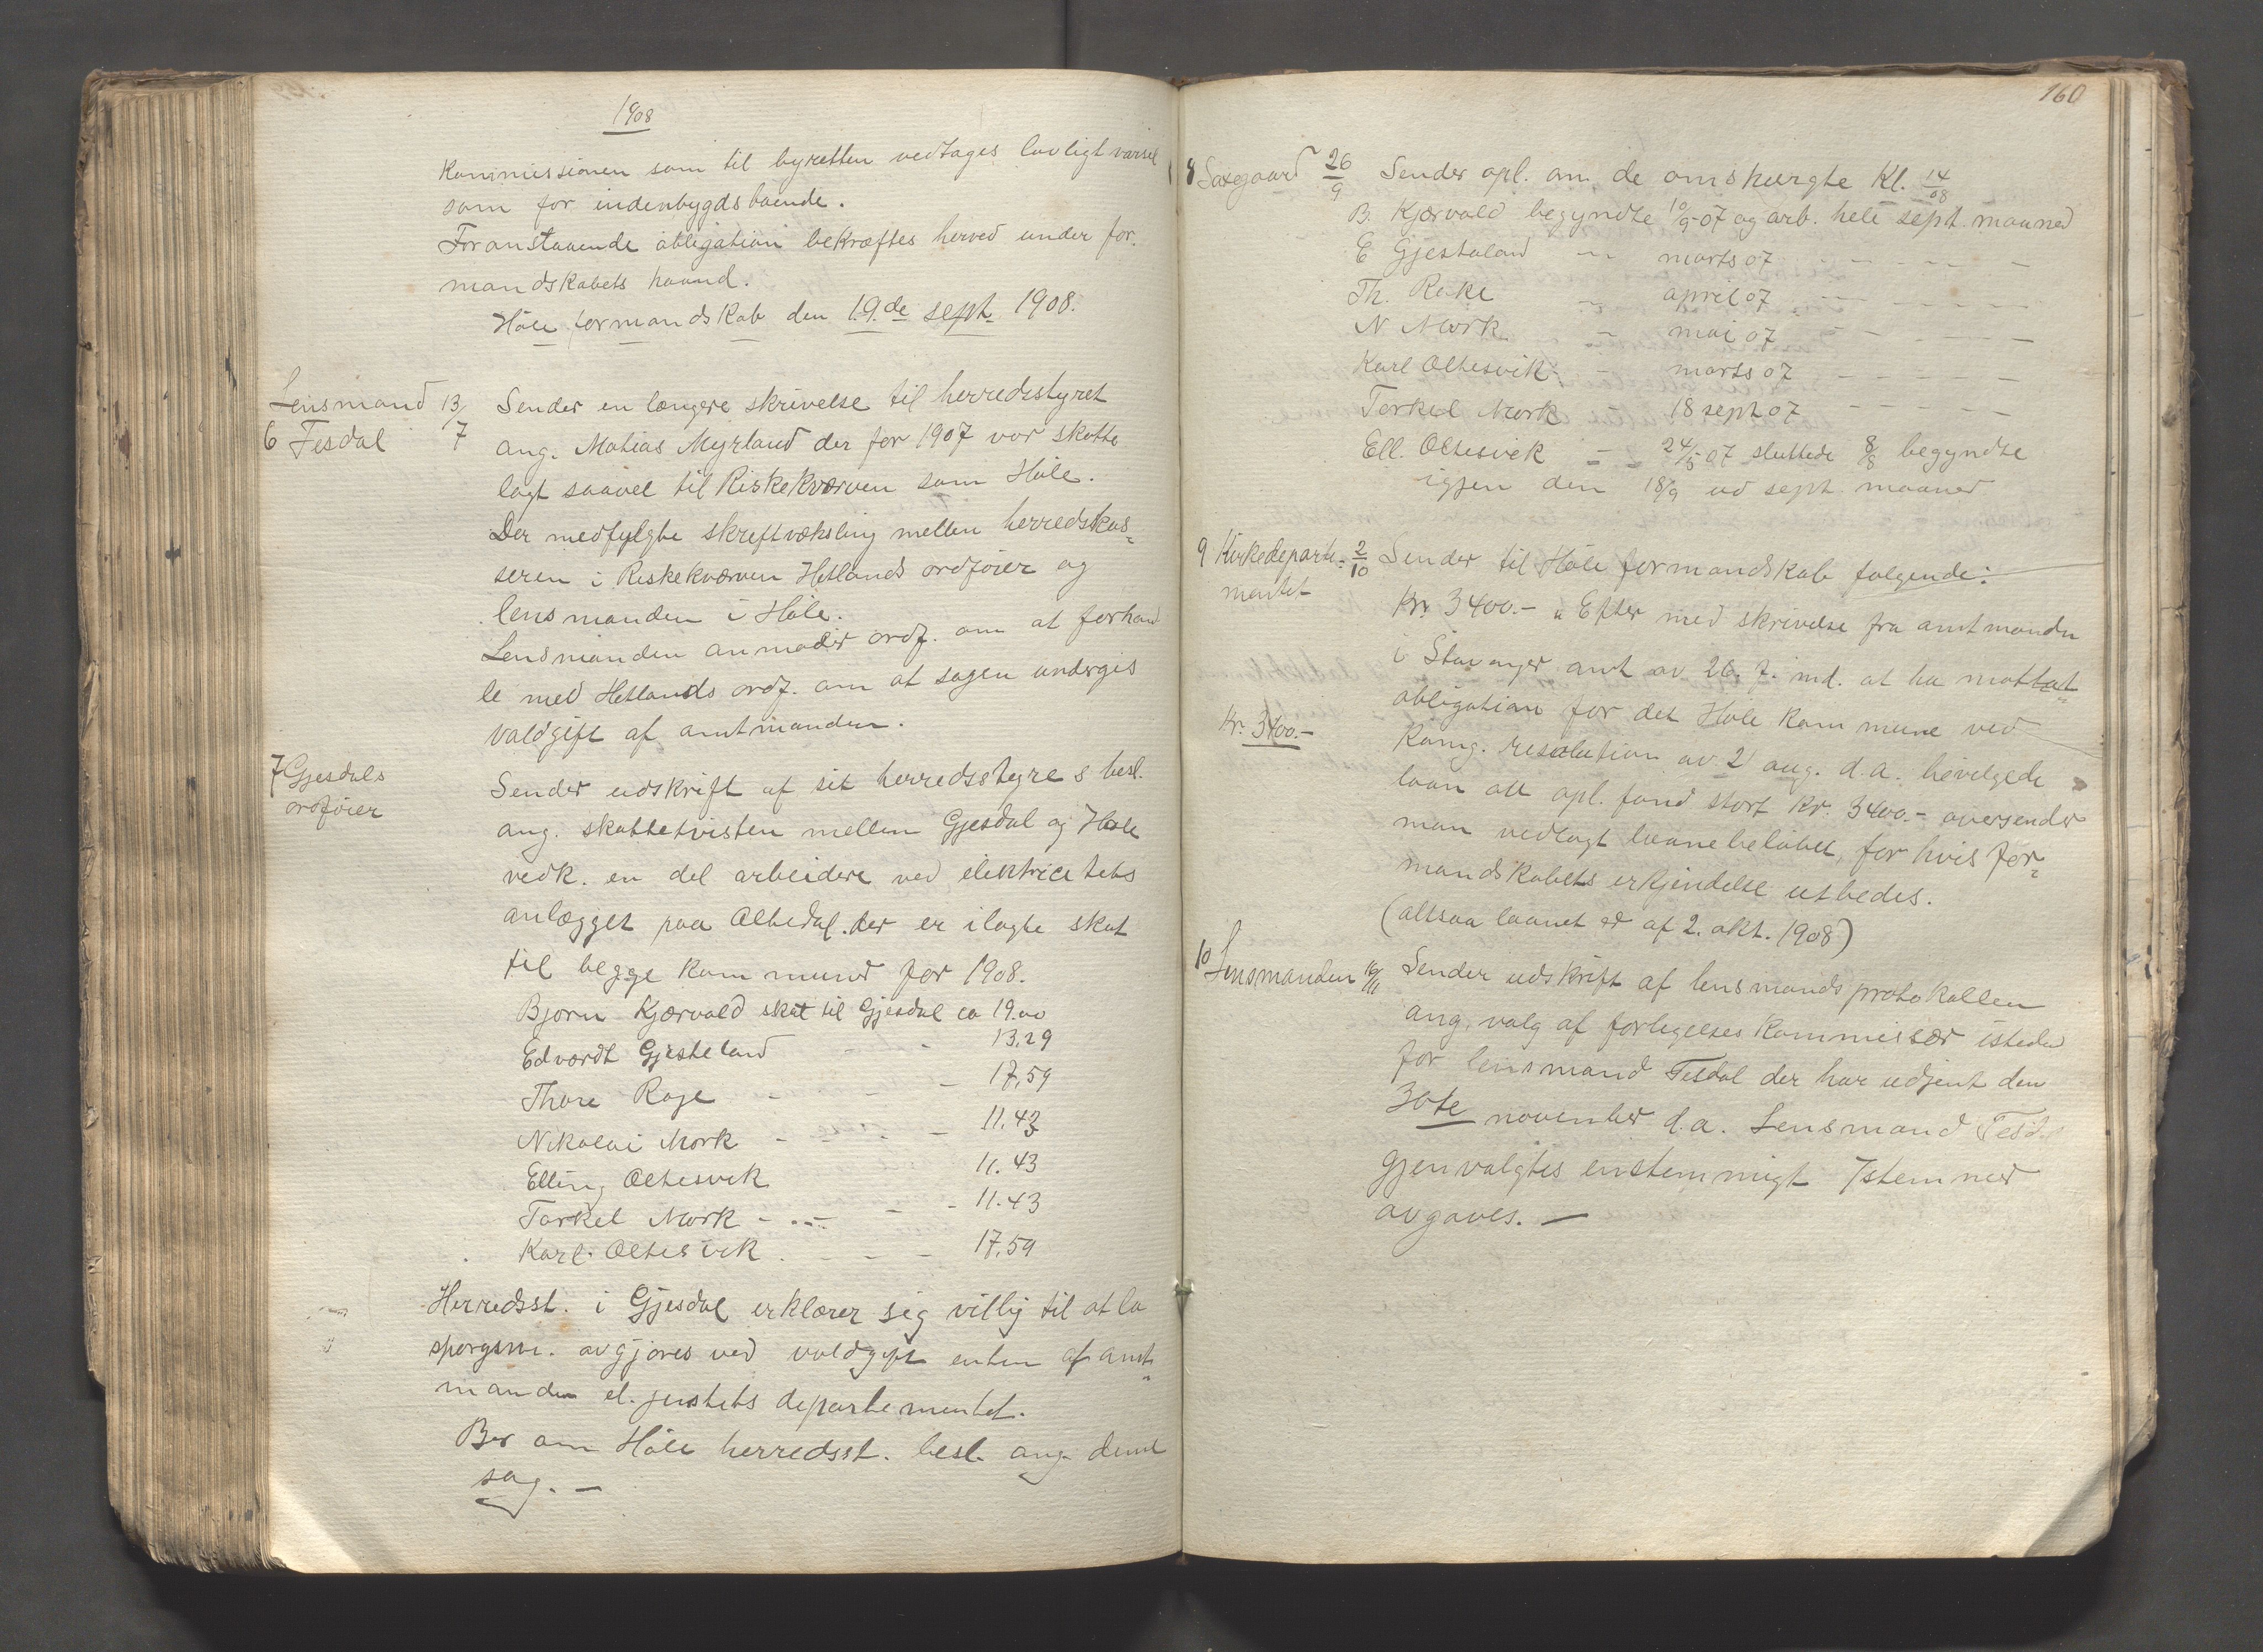 1908
Kommissionen som til byretten vedtages lovligt varsel
som for indenbygdsboende.
Foranstaaende obligation bekræftes herved under for-
mandskabets haand.
Høle formandskab den 19.de sept. 1908.
Lensmand 13/7 Sender en længere skrivelse til herredsstyret
6 Tesdal ang. Matias Myrland der for 1907 var skatte
lagt saavel til Riskekværven som Høle.
Der medfylgte skriftveksling mellem herredskas-
seren i Riskekværven Hetlands ordfører og
lensmanden i Høle.
Lensmanden anmoder ordf. om at forhand
le med Hetlands ordf. om at sagen undergis
voldgift af amtmanden.
7 Gjesdals Sender udskrift af sit herredsstyres besl.
ordfører
ang. skattetvisten mellem Gjesdal og Høle
vedk. en del arbeidere ved elektricitets
anlægget paa Oltedal der er ilagte skat
til begge kommuner for 1908.
Bjørn Kjærvold skat til Gjesdal ca 19.00
Edvardt Gjesteland - - 13.29
Thore Rage - - - 17,59
Nikolai Mork - - - 11.43
Elling Oltesvik 11.43
Torkel Mork - - - - 11.43
Karl Oltesvik - - - 17,59
Herredsst. i Gjesdal erklærer sig villig til at la
spørgsm. avgjøres ved voldgift enten af amt-
manden el. justits departementet.
Ber om Høle herredsst. besl. ang. denne
sag. -
160
8 Saxegaard 26/9 Sender opl. om de omspurgte Kl. 14/08
B. Kjærvold begyndte 10/9 07 og arb. hele sept. maaned
E Gjesteland - marts 07 - - - -
Th. Rake - april 07 - - - -
N Mork - mai 07 - - - -
Karl Oltesvik - marts 07 - - - -
Torkel Mork - 18 sept 07 - - - -
Ell. Oltesvik - - 24/5 07 sluttede 8/8 begyndte
igjen den 18/9 ud sept. maaned
9 Kirkedeparte- 2/10 Sender til Høle formandskab følgende:
mentet
Kr. 3400.- "Efter med skrivelse fra amtmanden
i Stavanger amt av 26. f. md. at ha mottat
obligation for det Høle kommune ved
Kr. 3400.-
kong. resolution av 21 aug. d.a. bevilgede
laan av opl. fond stort Kr. 3400.- oversender
man vedlagt laanebeløbet, for hvis for-
mandskabets erkjendelse utbedes.
(altsaa laanet er af 2. okt. 1908)
10 Lensmanden 16/11 Sender udskrift af lensmandsprotokollen
ang. valg af forligelseskommissær isteden
for lensmand Tesdal der har udtjent den
30te november d.a. Lensmand Tesdal
gjenvalgtes enstemmigt 7 stemmer
avgaves. -